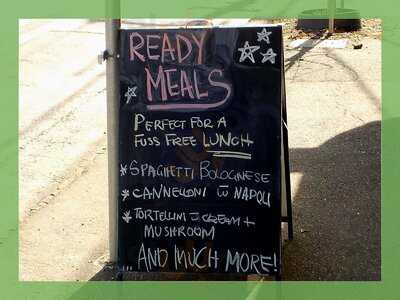 READY
MEALS
PERFECT FOR A
FUSS FREE LUNCH
* SPAGHETTI BOLOGNESE
* CANNELLONI W NAPOLI
* TORTELLINI CREAM +
MUSHROOM
... AND MUCH MORE!